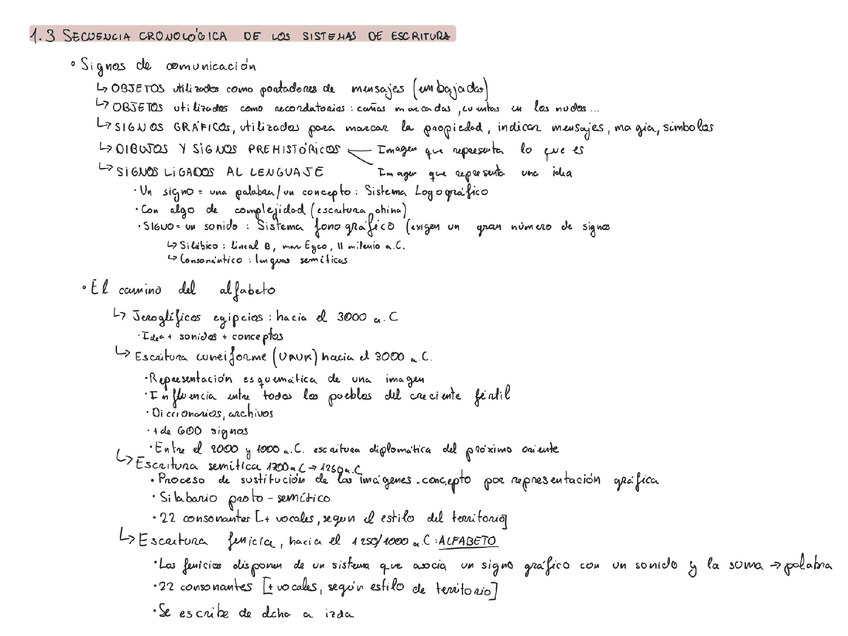 1.3 SECUENCIA CRONOLÓGICA DE LOS SISTEMAS DE ESCRITURA
• Signos de comunicación
↳ OBJETOS utilizados como portadores de mensajes (embajada)
↳ OBJETOS utilizados como recordatorios: cañas marcadas, cuentas en los nudos...
↳ SIGNOS GRÁFICOS, utilizados para marcar la propiedad, indicar mensajes, magia, símbolos
↳ DIBUJOS Y SIGNOS PREHISTÓRICOS — Imagen que representa lo que es
Imagen que representa una idea
↳ SIGNOS LIGADOS AL LENGUAJE
· Un signo = una palabra/un concepto: Sistema Logográfico
· Con algo de complejidad (escritura china)
· SIGNO = un sonido: Sistema fonográfico (exigen un gran número de signos
↳ Silábico: lineal B, mar Egeo, II milenio a.C.
↳ Consonántico: lenguas semíticas
• El camino del alfabeto
↳ Jeroglíficos egipcios: hacia el 3000 a.C
· Idea + sonidos + conceptos
↳ Escritura cuneiforme (URUK) hacia el 3000 a.C.
· Representación esquemática de una imagen
· Influencia entre todos los pueblos del creciente fértil
· Diccionarios, archivos
· + de 600 signos
· Entre el 2000 y 1000 a.C. escritura diplomática del próximo oriente
↳ Escritura semítica 1700 a.C → 1250 a.C
· Proceso de sustitución de las imágenes-concepto por representación gráfica
· Silabario proto-semítico
· 22 consonantes [+ vocales, segun el estilo del territorio]
↳ Escritura fenicia, hacia el 1250/1000 a.C: ALFABETO
· Los fenicios disponen de un sistema que asocia un signo gráfico con un sonido y la suma → palabra
· 22 consonantes [+ vocales, según estilo de territorio]
· Se escribe de dcha a izda